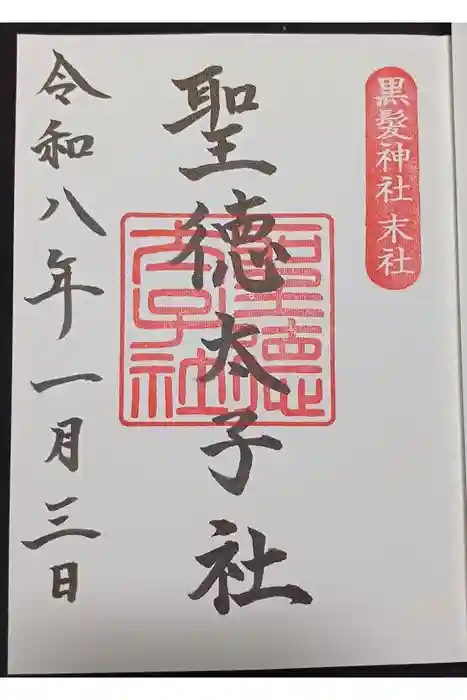 黒髪神社 末社
聖徳太子社
聖徳太子社
令和八年一月三日